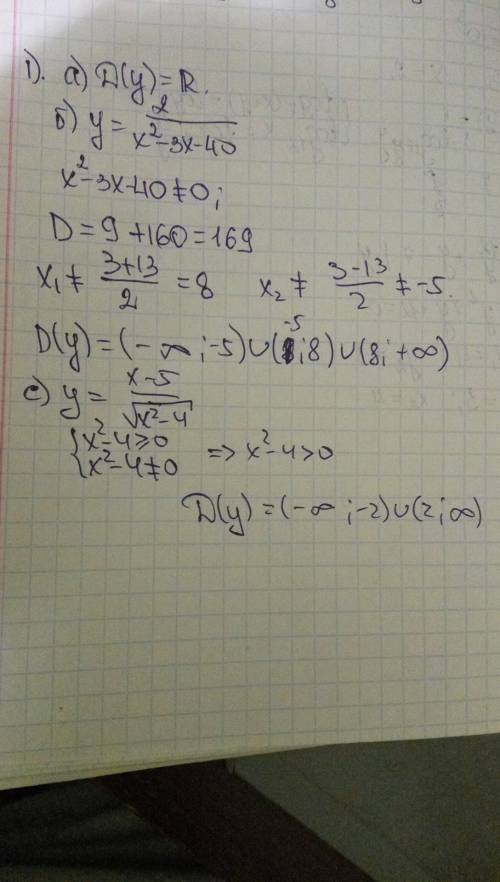 1). a) D(y)=R.
б) y = 2/(x²-3x-40)
x²-3x-40≠0;
D = 9+160=169
x₁ ≠ (3+13)/2 = 8 x₂ ≠ (3-13)/2 ≠ -5.
D(y)=(-∞;-5)∪(-5;8)∪(8;+∞)
c) y = (x-5)/√(x²-4)
{x²-4≥0
{x²-4≠0 => x²-4>0
D(y)=(-∞;-2)∪(2;∞)